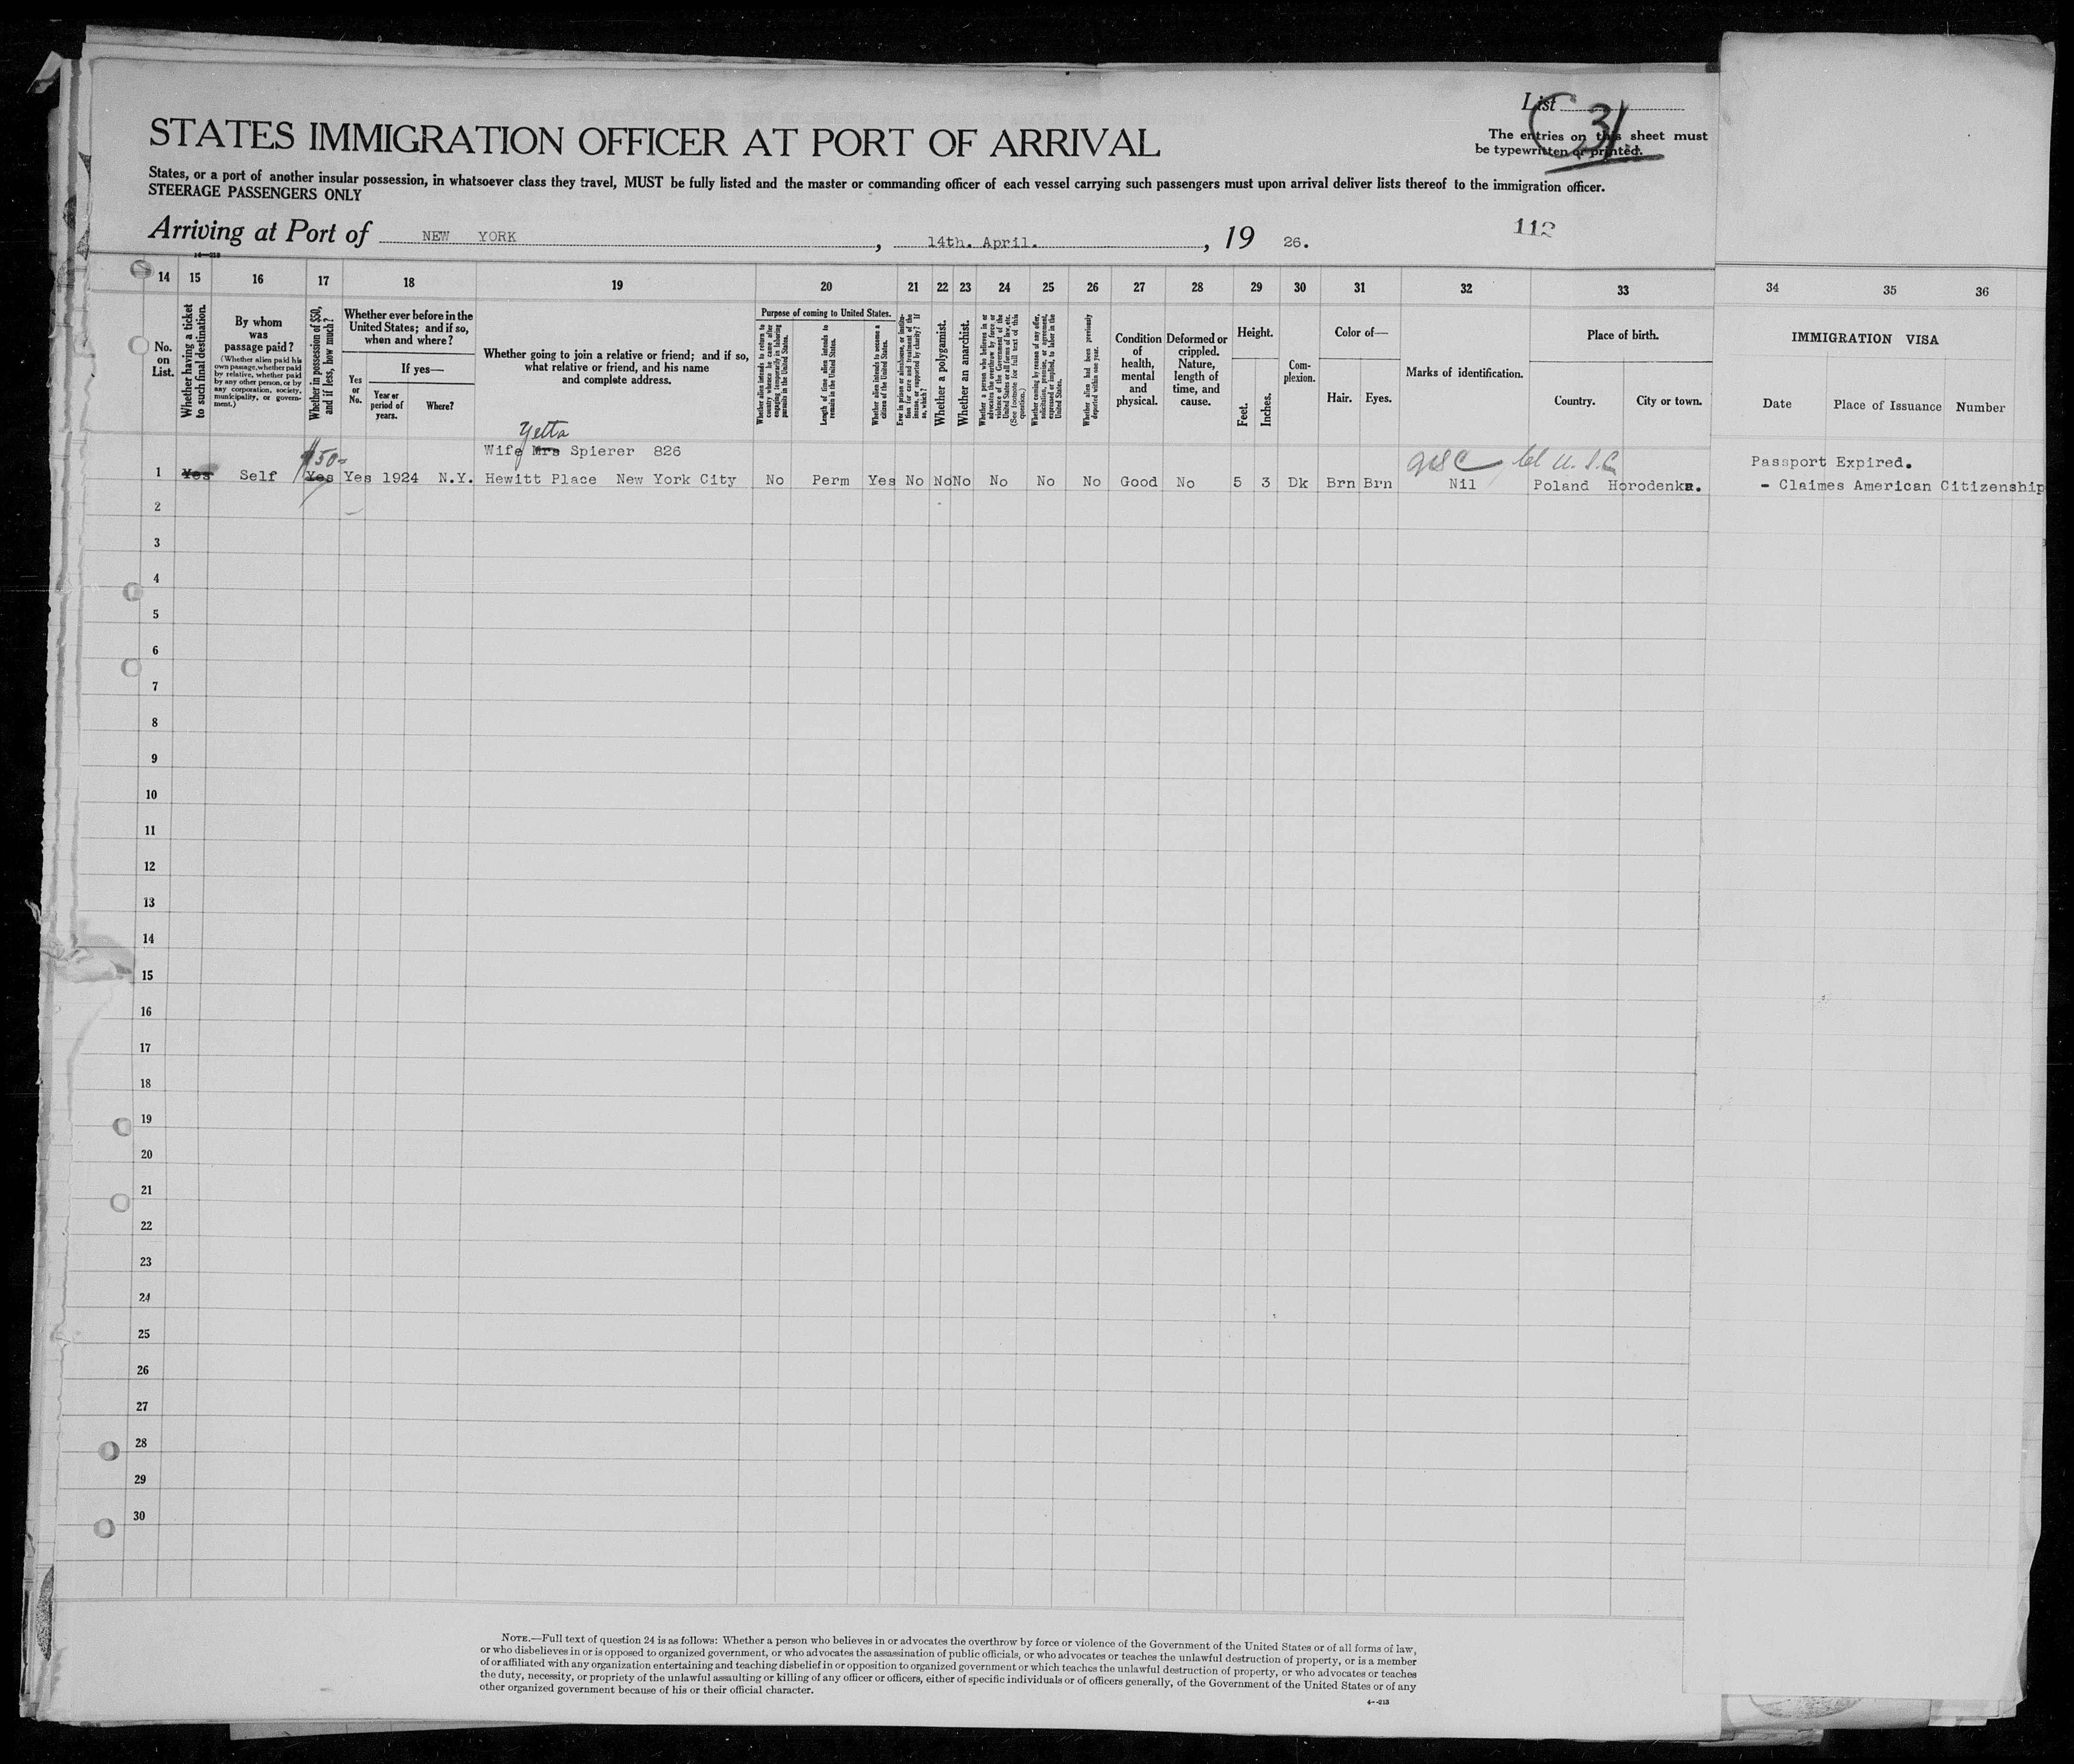 List
C 31
The entries on this sheet must
be typewritten or printed.
STATES IMMIGRATION OFFICER AT PORT OF ARRIVAL
States, or a port of another insular possession, in whatsoever class they travel, MUST be fully listed and the master or commanding officer of each vessel carrying such passengers must upon arrival deliver lists thereof to the immigration officer.
STEERAGE PASSENGERS ONLY
Arriving at Port of NEW YORK, 14th. April., 19 26.
112
14—213
14 15 16 17 18 19 20 21 22 23 24 25 26 27 28 29 30 31 32 33 34 35 36
No. on List.
Whether having a ticket to such final destination.
By whom was passage paid?
(Whether alien paid his own passage, whether paid by relative, whether paid by any other person, or by any corporation, society, municipality, or government.)
Whether in possession of $50, and if less, how much?
Whether ever before in the United States; and if so, when and where?
Yes or No.
If yes—
Year or period of years.
Where?
Whether going to join a relative or friend; and if so, what relative or friend, and his name and complete address.
Purpose of coming to United States.
Whether alien intends to return to country whence he came after engaging temporarily in laboring pursuits in the United States.
Length of time alien intends to remain in the United States.
Whether alien intends to become a citizen of the United States.
Ever in prison or almshouse, or institution for care and treatment of the insane, or supported by charity? If so, which?
Whether a polygamist.
Whether an anarchist.
Whether a person who believes in or advocates the overthrow by force or violence of the Government of the United States or all forms of law, etc. (See footnote for full text of this question.)
Whether coming by reason of any offer, solicitation, promise, or agreement, expressed or implied, to labor in the United States.
Whether alien had been previously deported within one year.
Condition of health, mental and physical.
Deformed or crippled. Nature, length of time, and cause.
Height.
Feet.
Inches.
Complexion.
Color of—
Hair.
Eyes.
Marks of identification.
Place of birth.
Country.
City or town.
IMMIGRATION VISA
Date
Place of Issuance
Number
Yetta
$50-
Wife Mrs Spierer 826
Cl U.S.C
Passport Expired.
1 Yes Self Yes Yes 1924 N.Y. Hewitt Place New York City No Perm Yes No No No No No No Good No 5 3 Dk Brn Brn Nil Poland Horodenka. - Claimes American Citizenship
2
3
4
5
6
7
8
9
10
11
12
13
14
15
16
17
18
19
20
21
22
23
24
25
26
27
28
29
30
NOTE.—Full text of question 24 is as follows: Whether a person who believes in or advocates the overthrow by force or violence of the Government of the United States or of all forms of law,
or who disbelieves in or is opposed to organized government, or who advocates the assassination of public officials, or who advocates or teaches the unlawful destruction of property, or is a member
of or affiliated with any organization entertaining and teaching disbelief in or opposition to organized government or which teaches the unlawful destruction of property, or who advocates or teaches
the duty, necessity, or propriety of the unlawful assaulting or killing of any officer or officers, either of specific individuals or of officers generally, of the Government of the United States or of any
other organized government because of his or their official character.
4—213